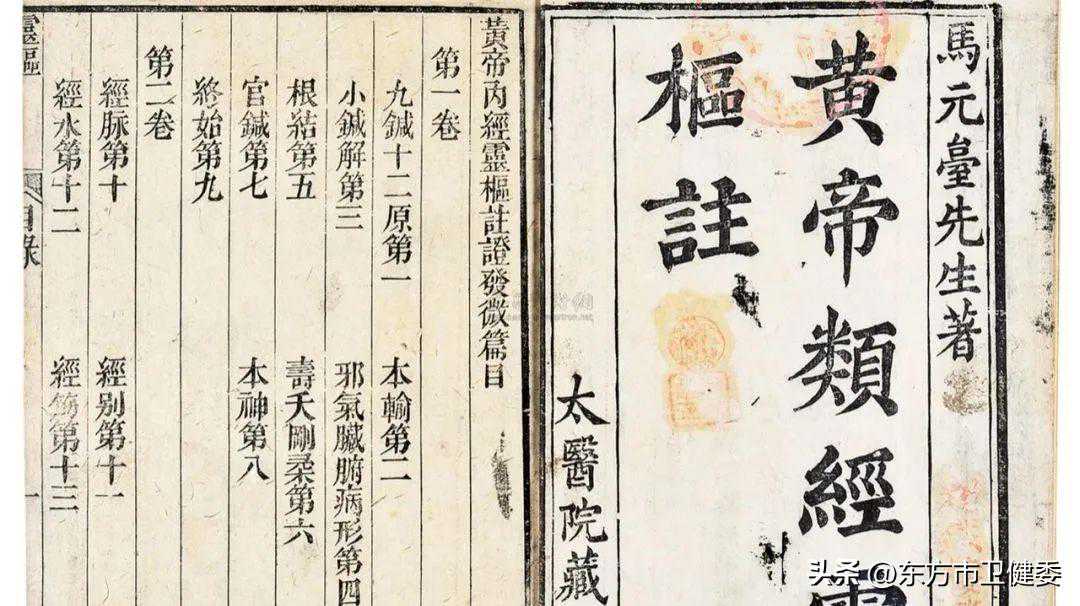 馬元臺先生著
黃帝類經靈
樞註
太醫院藏
黃帝內經靈樞註證發微篇目
第一卷
九鍼十二原第一 本輸第二
小鍼解第三 邪氣臟腑病形第四
根結第五 壽夭剛柔第六
官鍼第七 本神第八
終始第九
第二卷
經脉第十 經别第十一
經水第十二 經筋第十三
靈樞
目錄
一
头条 @东方市卫健委